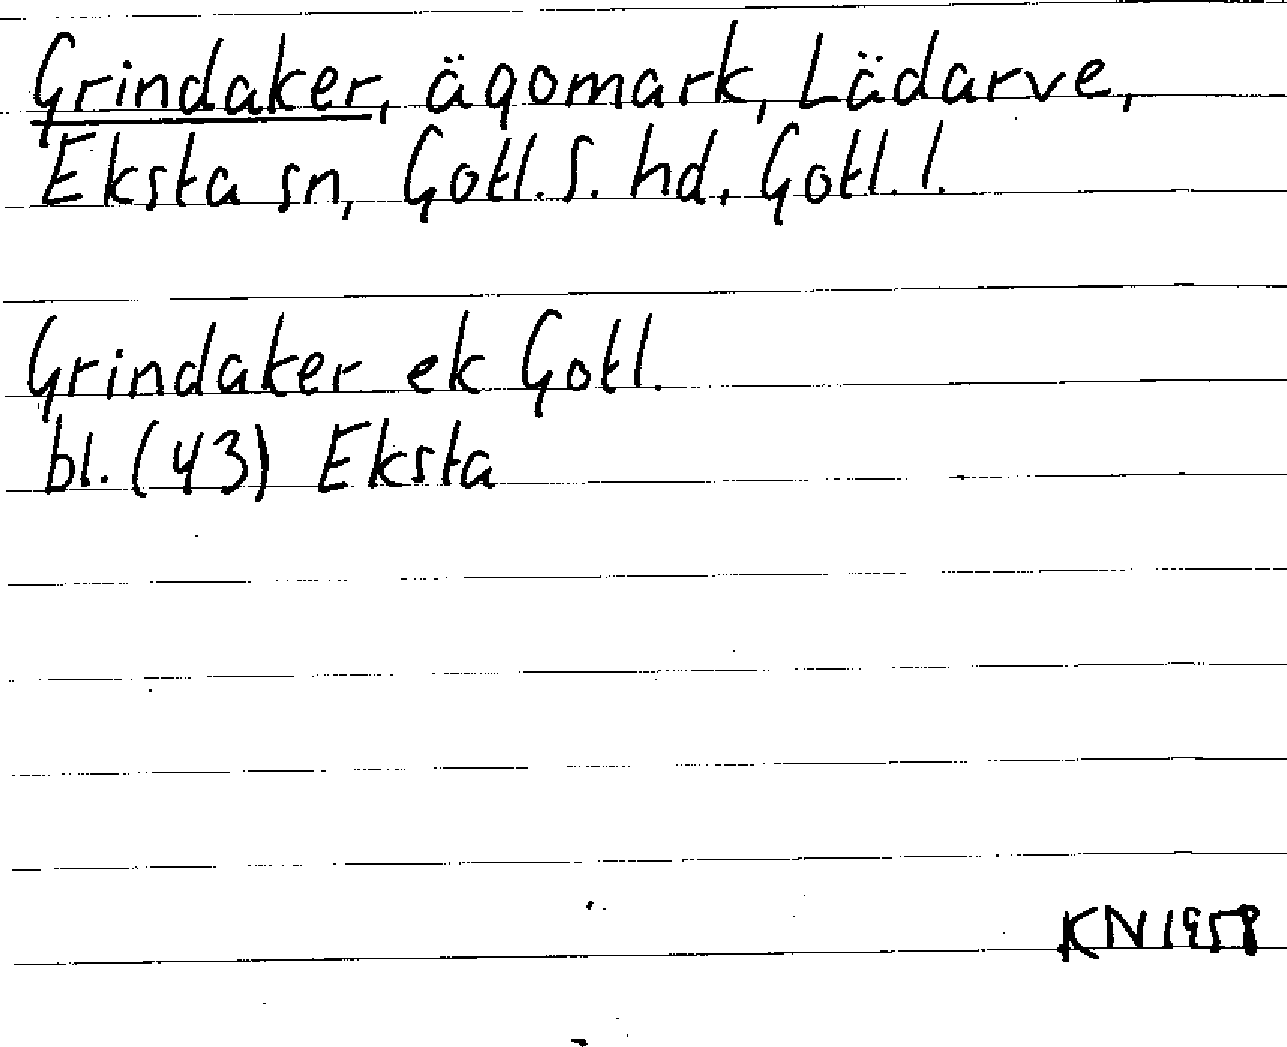 Grindaker, ägomark, Lädarve,
Eksta sn, Gotl. S. hd, Gotl. l.
Grindaker ek Gotl.
bl. (43) Eksta
KN 1958